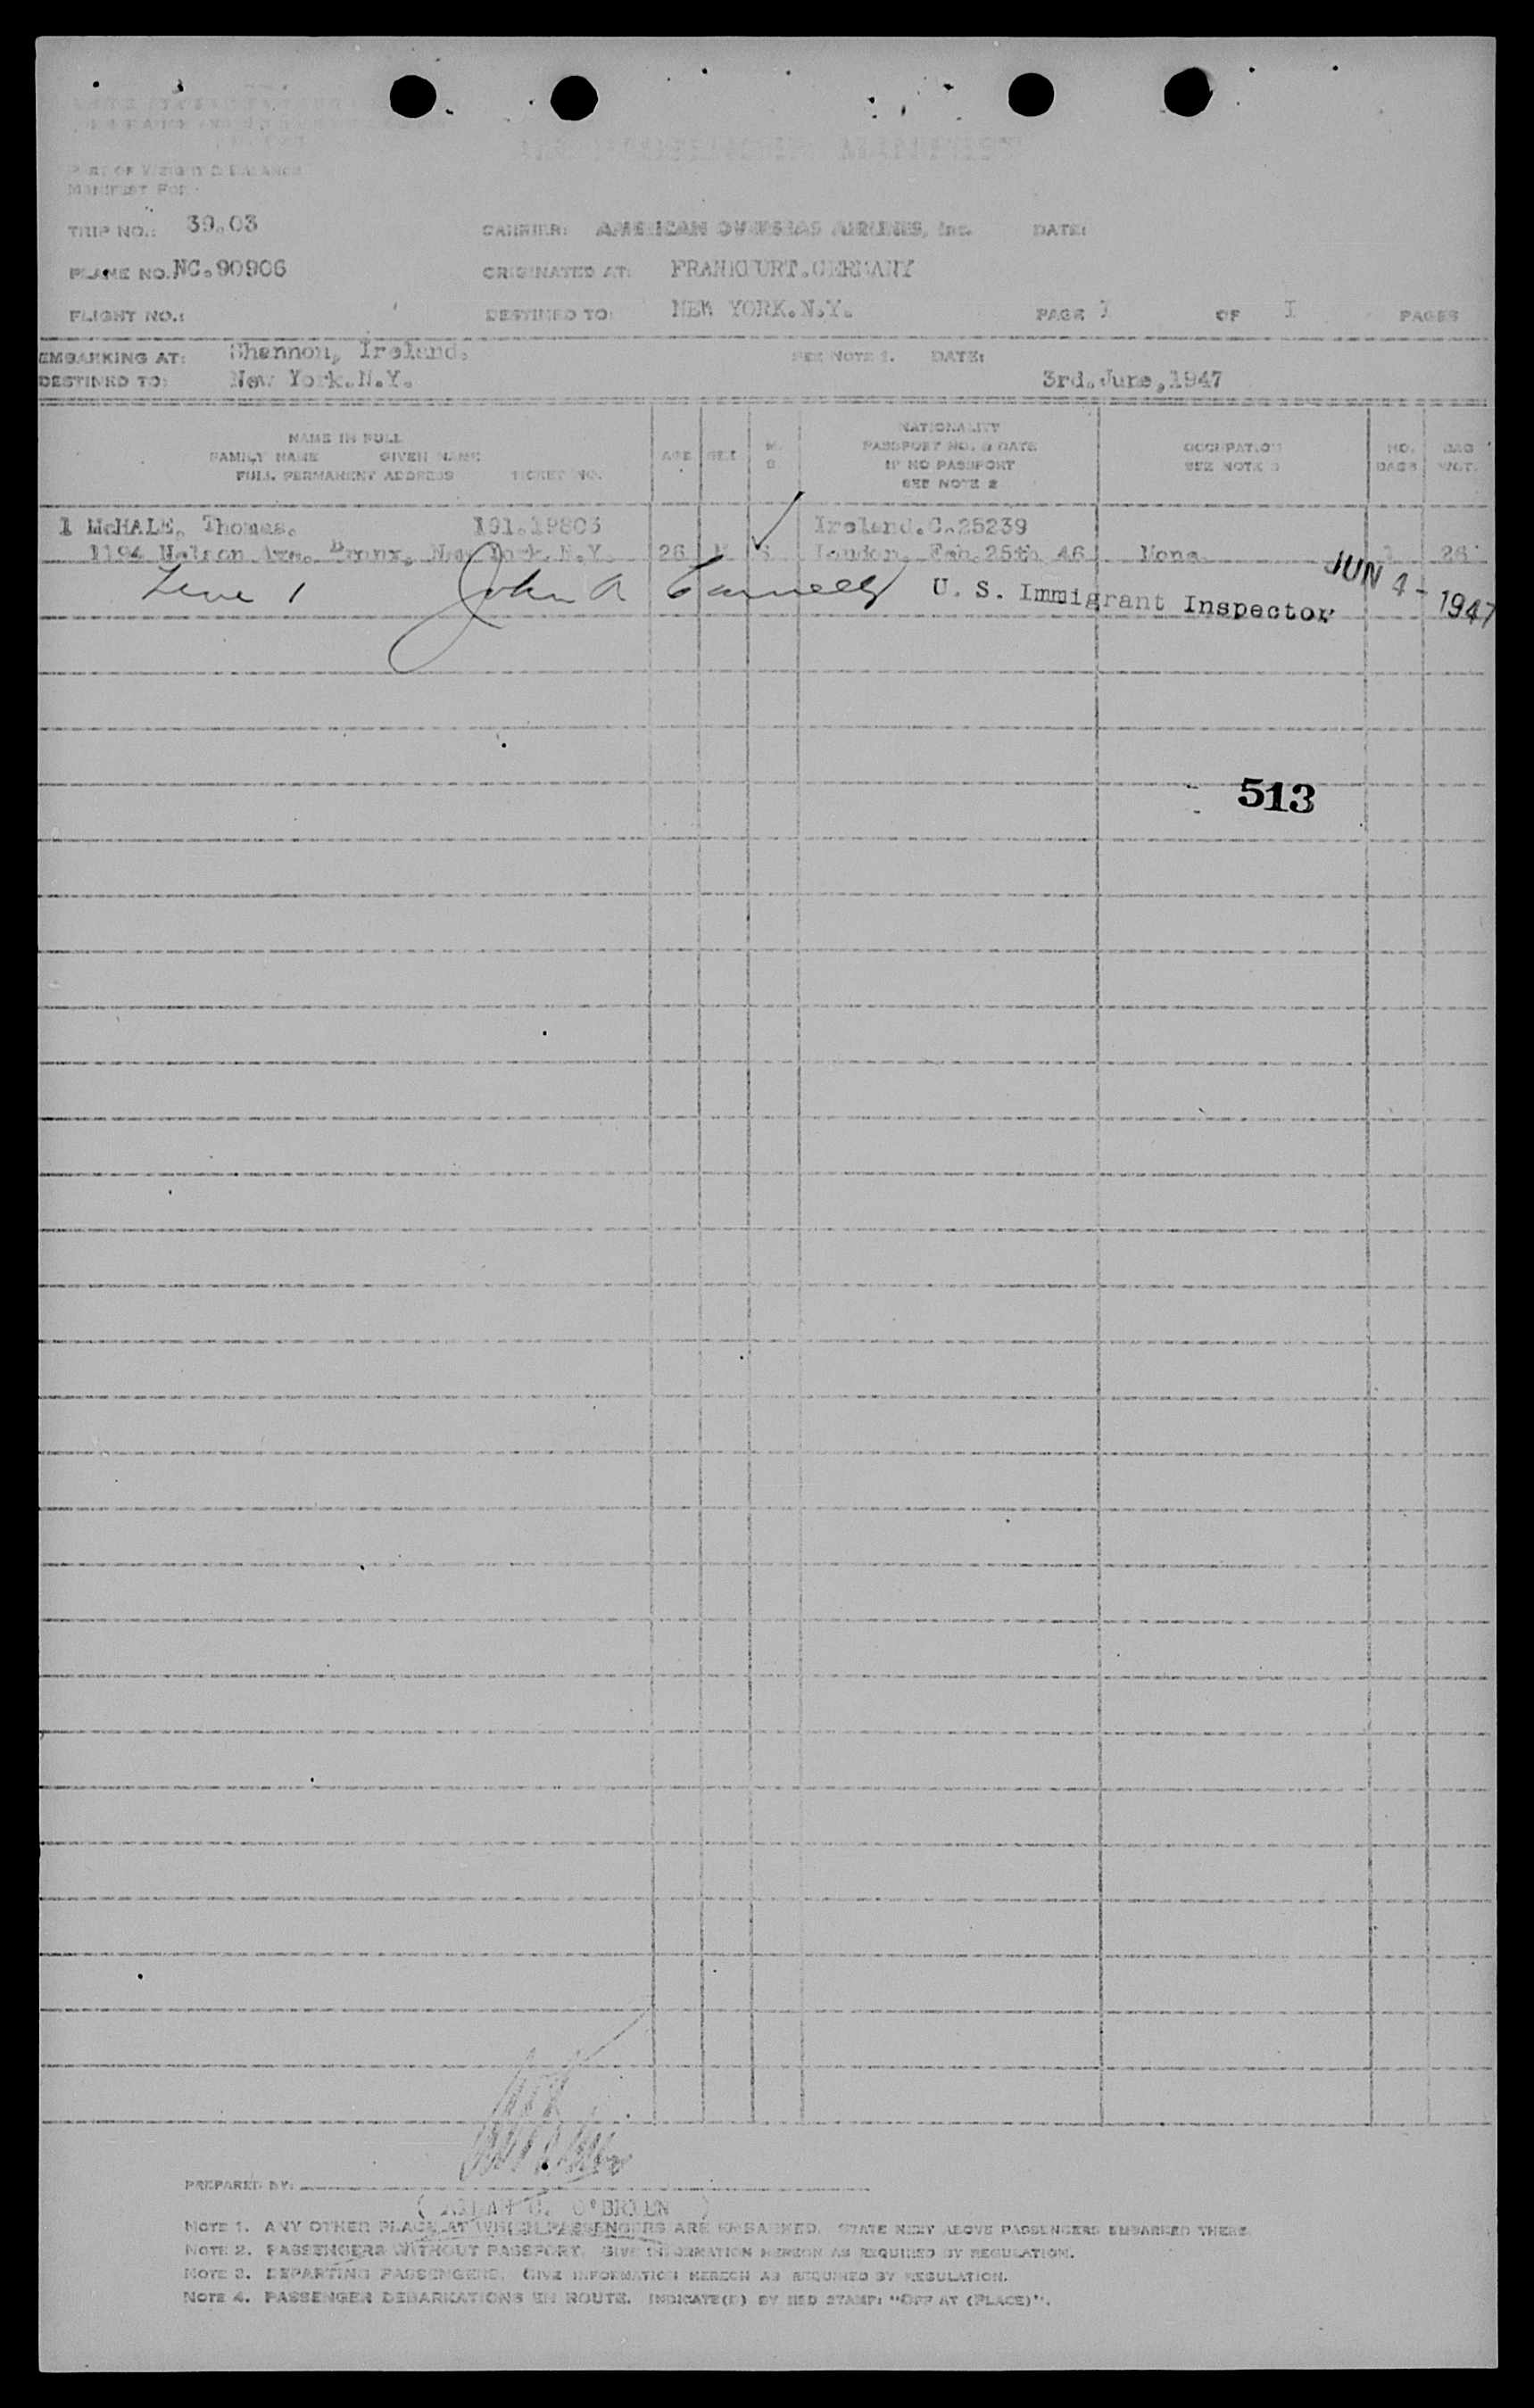 AIR PASSENGER MANIFEST
PART OF WEIGHT & BALANCE
MANIFEST FOR:
TRIP NO.: 39.03 CARRIER: AMERICAN OVERSEAS AIRLINES, Inc. DATE:
PLANE NO. NC.90906 ORIGINATED AT: FRANKFURT.GERMANY
FLIGHT NO.: DESTINED TO: NEW YORK.N.Y. PAGE 1 OF I PAGES
EMBARKING AT: Shannon, Ireland. SEE NOTE 1. DATE:
DESTINED TO: New York.N.Y. 3rd.June,1947
NAME IN FULL
FAMILY NAME GIVEN NAME
FULL PERMANENT ADDRESS TICKET NO.
AGE SEX M. S.
NATIONALITY
PASSPORT NO. & DATE
IF NO PASSPORT
SEE NOTE 2
OCCUPATION
SEE NOTE 3
NO. BAGS
BAG WGT.
1 McHALE, Thomas. 191.19803 Ireland.C.25239
1194 Nelson Ave. Bronx, New York.N.Y. 26 M S London, Feb.25th 46 None. 26
Line 1 John A U. S. Immigrant Inspector JUN 4 - 1947
513
PREPARED BY:
O'BRIEN )
NOTE 1. ANY OTHER PLACE AT WHICH PASSENGERS ARE EMBARKED. STATE NEXT ABOVE PASSENGERS EMBARKED THERE.
NOTE 2. PASSENGERS WITHOUT PASSPORT. GIVE INFORMATION HEREON AS REQUIRED BY REGULATION.
NOTE 3. DEPARTING PASSENGERS. GIVE INFORMATION HEREON AS REQUIRED BY REGULATION.
NOTE 4. PASSENGER DEBARKATIONS EN ROUTE. INDICATE(D) BY RED STAMP: "OFF AT (PLACE)".